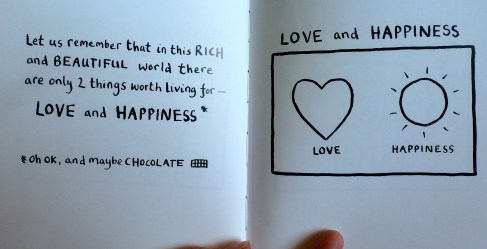 Let us remember that in this RICH
and BEAUTIFUL world there
are only 2 things worth living for —
LOVE and HAPPINESS*
* oh OK, and maybe CHOCOLATE
LOVE and HAPPINESS
LOVE
HAPPINESS